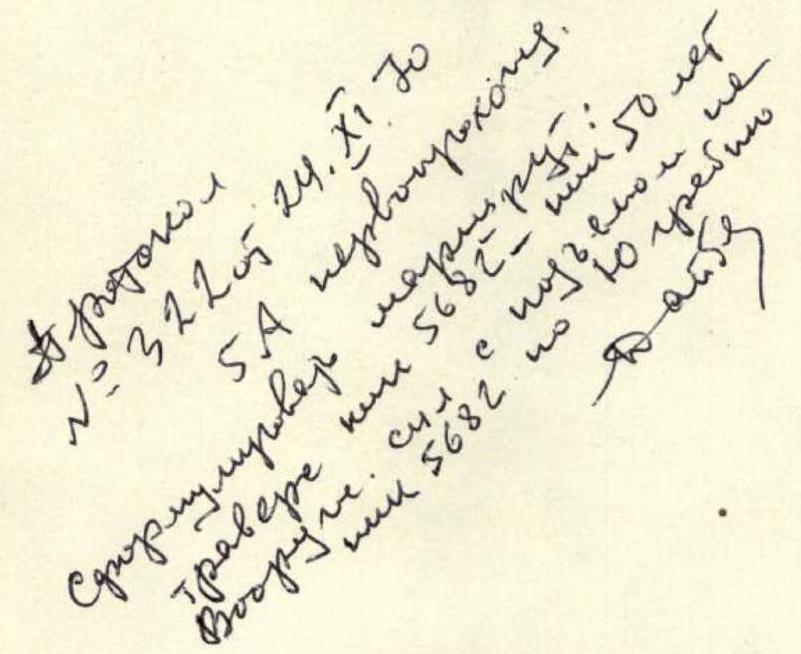 Протокол
№ 322 от 24.XI.70
5А первопрохожд.
Сформулировать маршрут:
траверс пик 5682 – пик 50 лет
Вооруж. сил с подъемом на
пик 5682 по Ю гребню